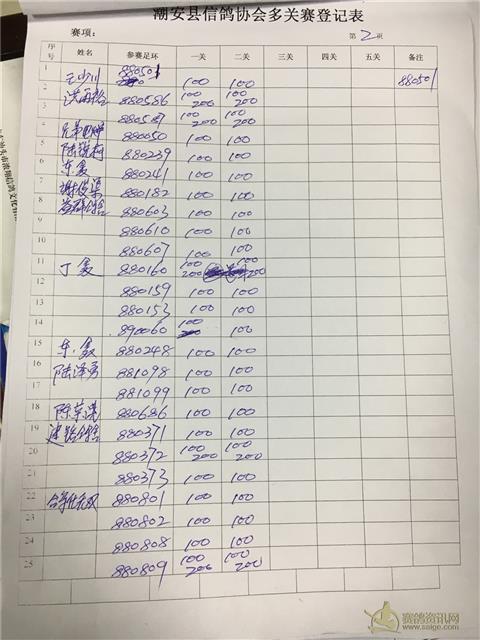 潮安县信鸽协会多关赛登记表
赛项： 第 2 班
序号 姓名 参赛足环 一关 二关 三关 四关 五关 备注
1 880501 100 100 880501
2 880586 100 200 100 200
3 880589 100 200 100 200
4 880050 100 100
5 880239 100 100
6 东鑫 880241 100 100
7 880182 100 100
8 880603 100 100
9 880610 100 100
10 880607 100 100
11 丁鑫 880160 100 200 100 200
12 880159 100 100
13 880153 100 100
14 890060 100 100
15 东鑫 880248 100 100
16 陆泽勇 881098 100 100
17 881099 100 100
18 880686 100 100
19 880371 100 100
20 880372 100 200 100 200
21 880373 100 100
22 880801 100 100
23 880802 100 100
24 880808 100 100
25 880809 100 200 100 200
赛鸽资讯网
www.saige.com